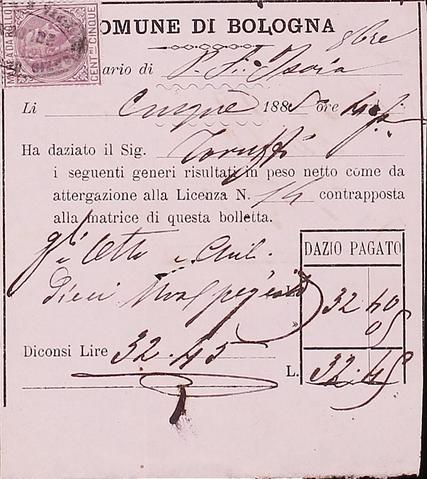 MARCA DA BOLLO
CENT. DI CINQUE
COMUNE DI BOLOGNA
8bre
ario di P. S. Isaia
Li Cinque 188 ore
Ha daziato il Sig.
i seguenti generi risultati in peso netto come da
attergazione alla Licenza N. 14 contrapposta
alla matrice di questa bolletta.
DAZIO PAGATO
Dieci
32 40
05
Diconsi Lire 32.45
L. 32.45